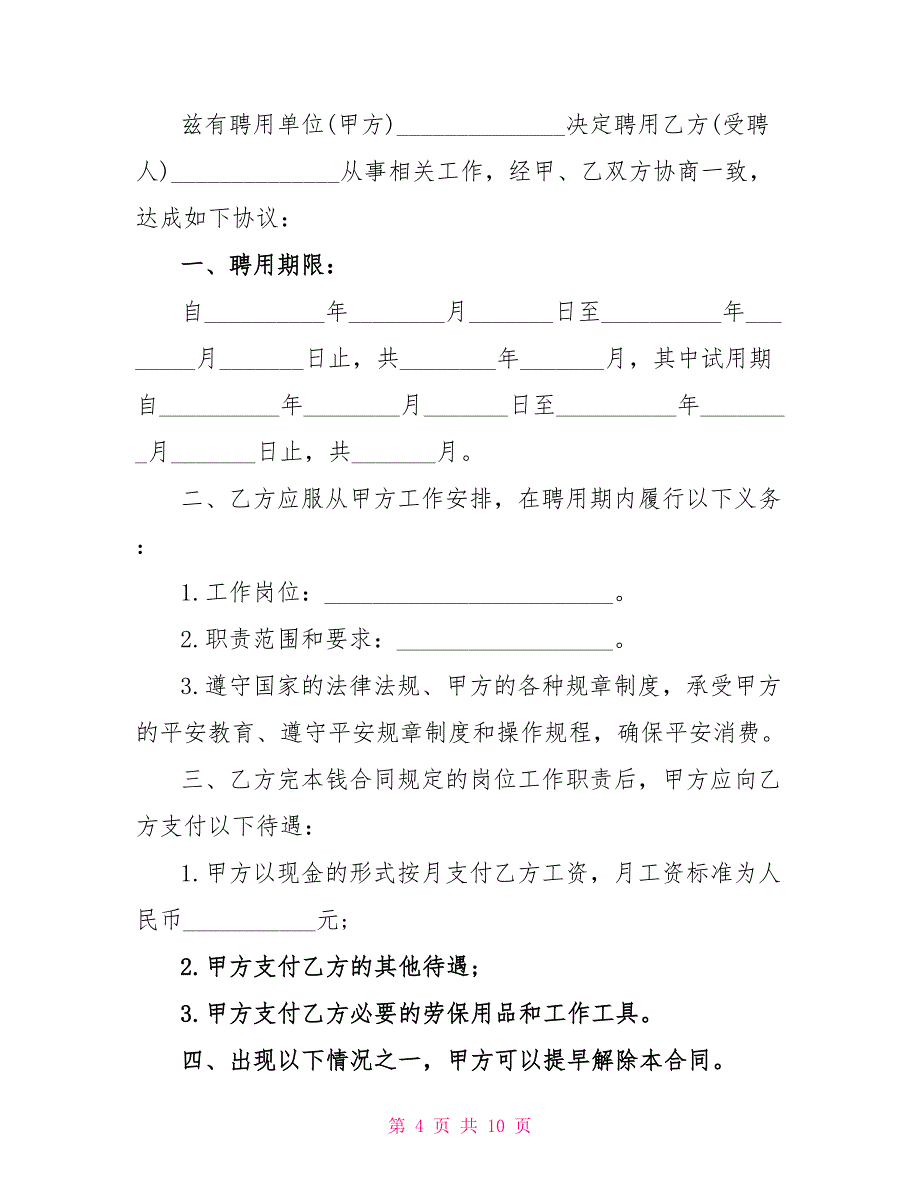 兹有聘用单位(甲方)______________决定聘用乙方(受聘
人)______________从事相关工作，经甲、乙双方协商一致，
达成如下协议：
一、聘用期限：
自__________年________月_______日至__________年___
_____月_______日止，共________年_______月，其中试用期
自__________年________月_______日至__________年_______
_月_______日止，共_______月。
二、乙方应服从甲方工作安排，在聘用期内履行以下义务
：
1.工作岗位：________________________。
2.职责范围和要求：__________________。
3.遵守国家的法律法规、甲方的各种规章制度，承受甲方
的平安教育、遵守平安规章制度和操作规程，确保平安消费。
三、乙方完本钱合同规定的岗位工作职责后，甲方应向乙
方支付以下待遇：
1.甲方以现金的形式按月支付乙方工资，月工资标准为人
民币___________元;
2.甲方支付乙方的其他待遇;
3.甲方支付乙方必要的劳保用品和工作工具。
四、出现以下情况之一，甲方可以提早解除本合同。
第 4 页 共 10 页